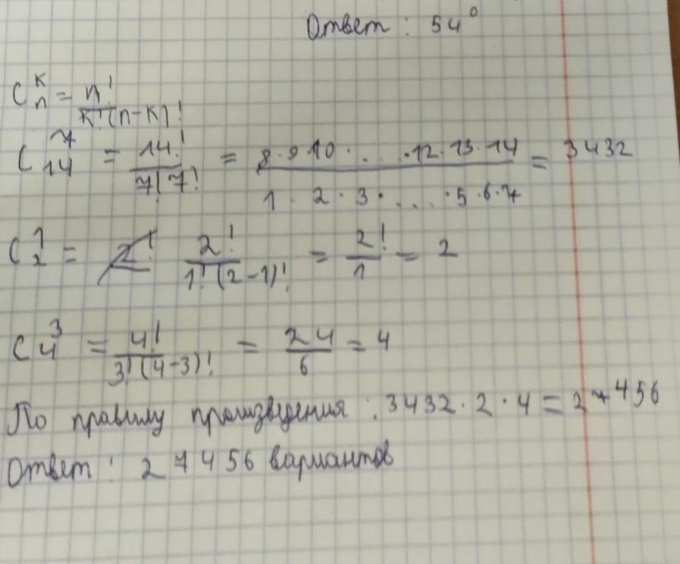 Ответ: 54°
C_n^k = n! / k!(n-k)!
C_14^7 = 14! / 7!7! = 8·9·10·...·12·13·14 / 1·2·3·...·5·6·7 = 3432
C_2^1 = 2! / 1!(2-1)! = 2! / 1 = 2
C_4^3 = 4! / 3!(4-3)! = 24 / 6 = 4
По правилу произведения: 3432·2·4=27456
Ответ: 27456 вариантов